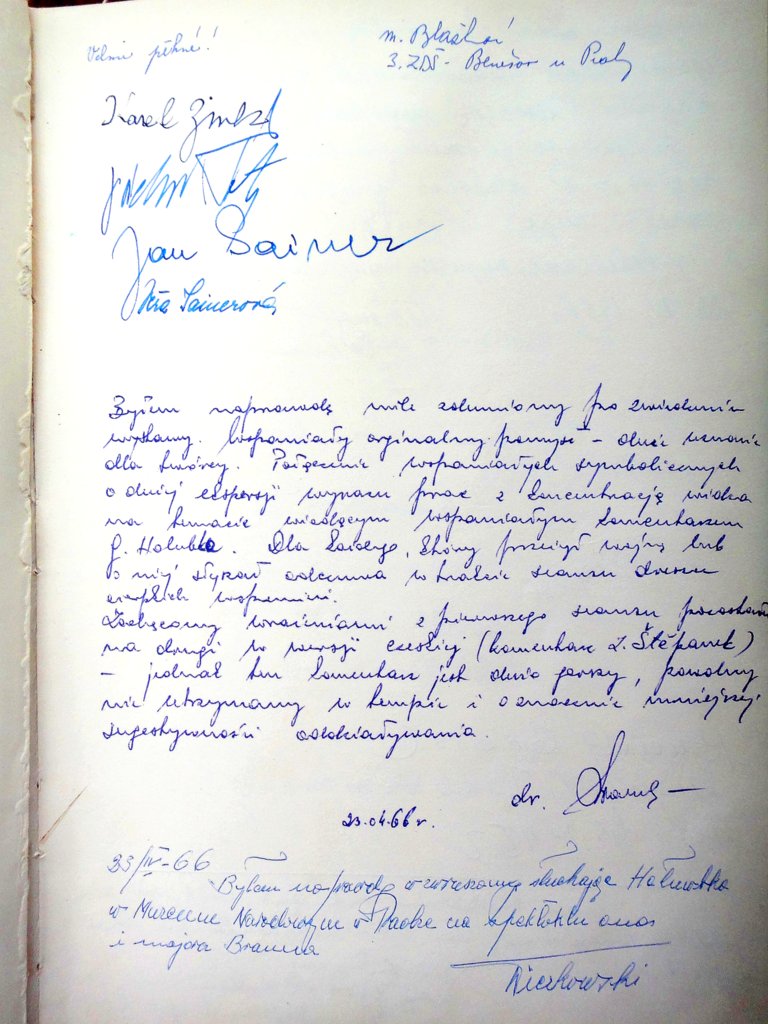 Velmi pěkné!
m. Blašková
3. ZDŠ - Benešov u Prahy
Karel
Jan Sainer
Věra Sainerová
Byłem naprawdę mile zdumiony po zwiedzeniu
wystawy. Wspaniały orginalny pomysł - duże uznanie
dla twórcy. Połączenie wspaniałych symbolicznych
o dużej ekspersji wyrazu prac z koncentracją widza
na temacie wiodącym wspaniałym komentarzem
G. Holubka. Dla każdego, który przeżył wojnę lub
o niej słyszał odczuwa w trakcie seansu dreszcz
wspomnień.
Zachęcony wrażeniami z pierwszego seansu pozostałem
na drugi w wersji czeskiej (komentarz Z. Štěpanek)
- jednak ten komentarz jest dużo gorszy, powolny
nie utrzymany w tempie i o znacznie mniejszej
sugestywności oddziaływania.
dr.
23.04.66 r.
23/IV-66 Byłem naprawdę wzruszony słuchając Hołubka
w Muzeum Narodowym w Pradze na spektaklu
i majora Brauna